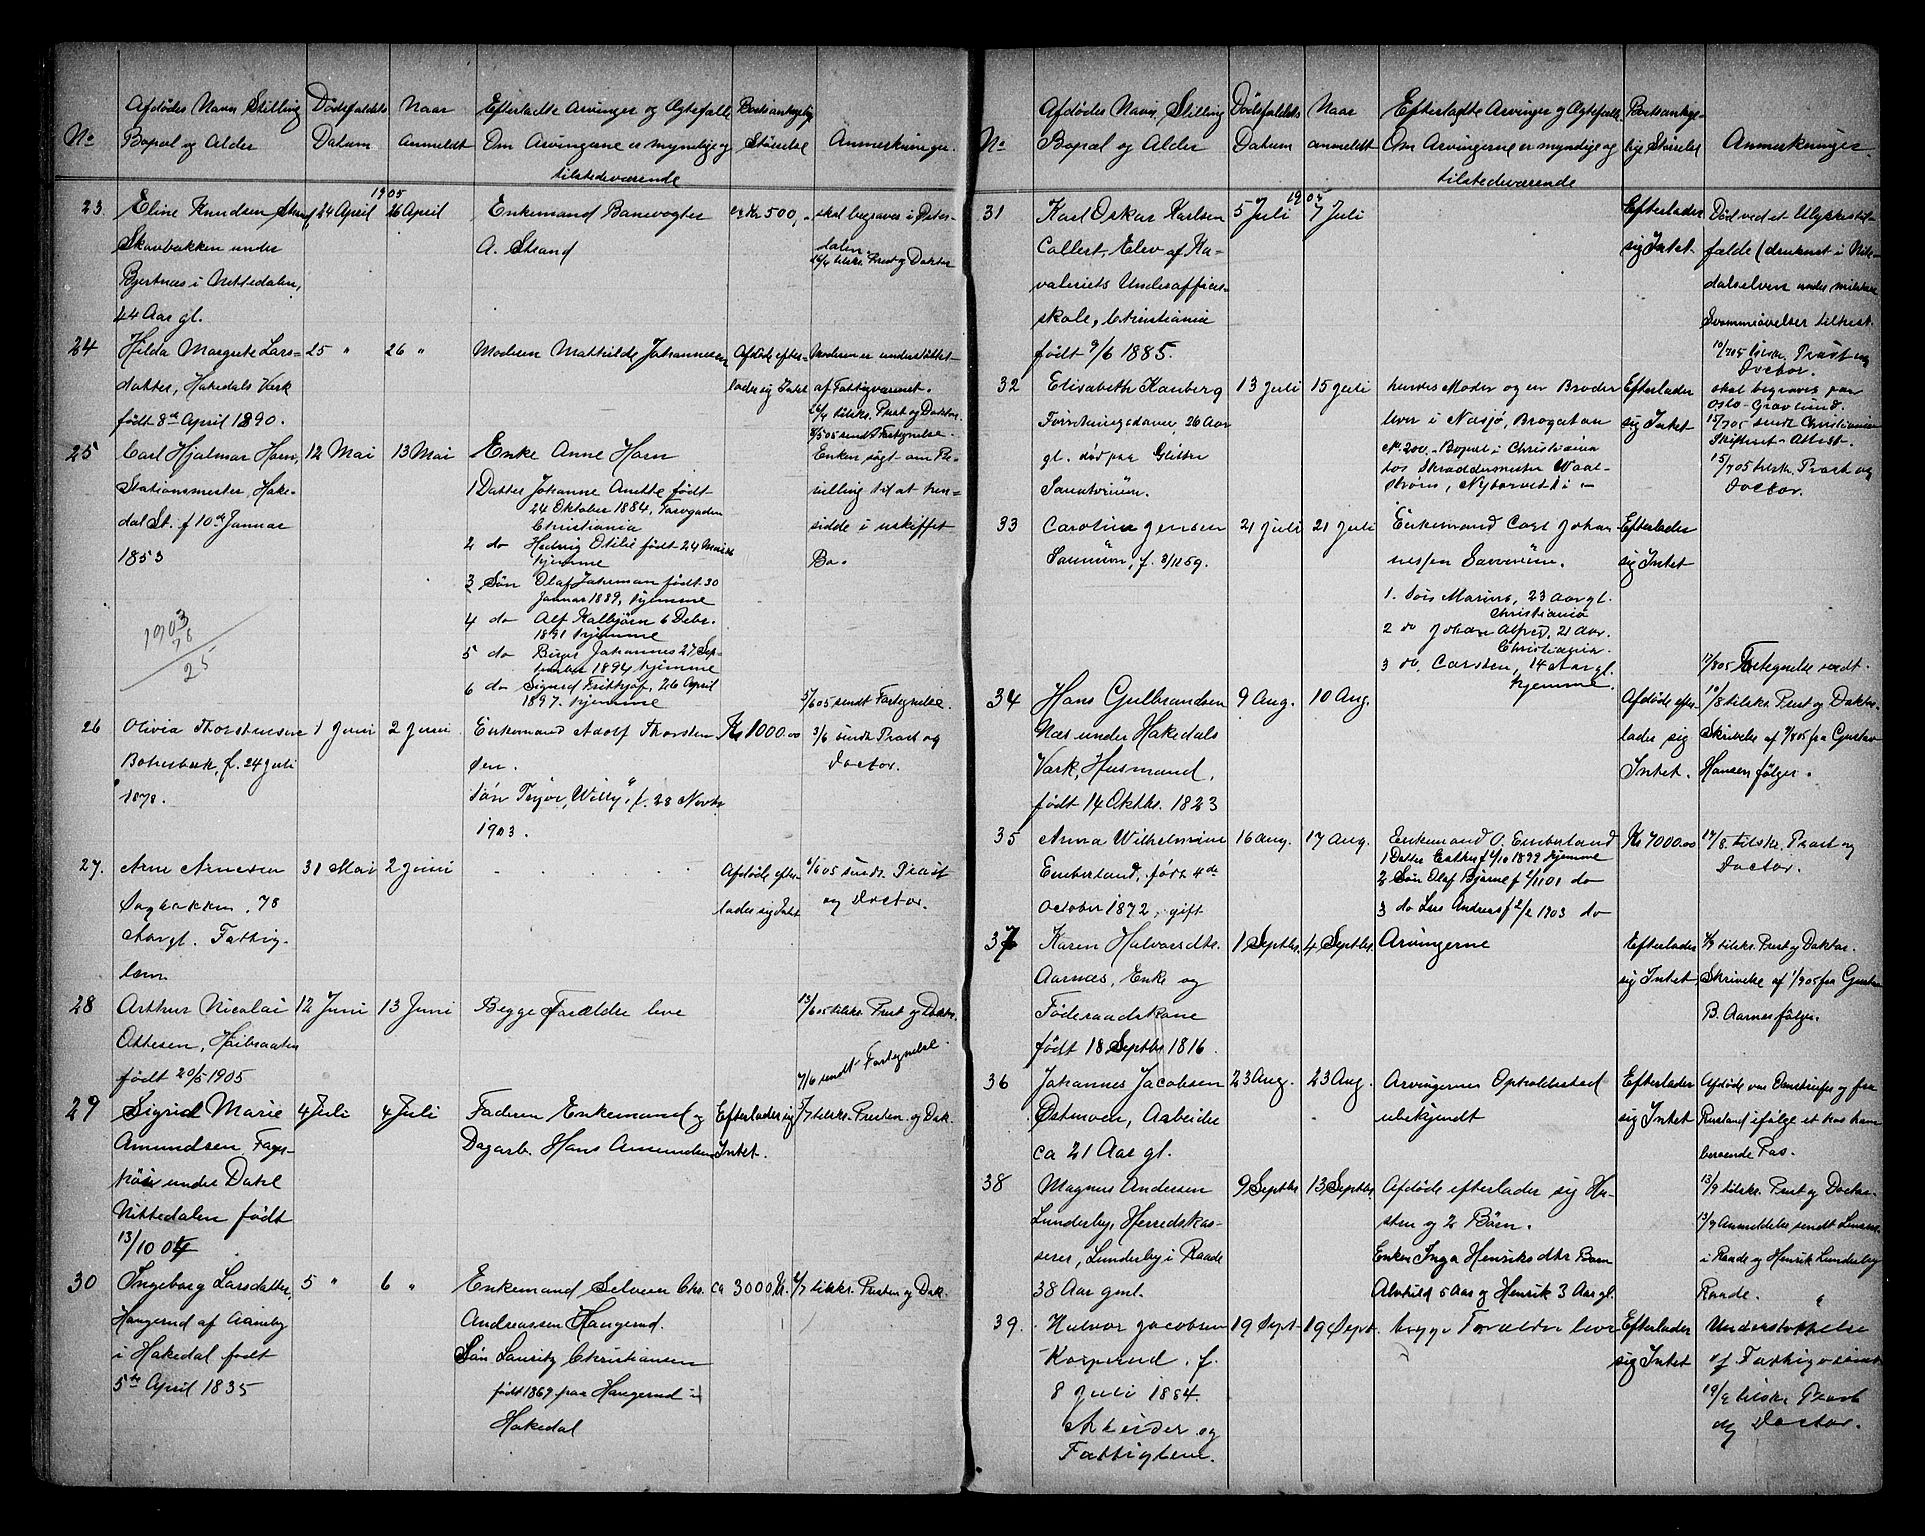 No
Afdødes Navn Stilling
Bopæl og Alder
Dødsfaldets
Datum
Naar
anmeldt
Efterladte Arvinger og Ægtefælle
Om Arvingerne er myndige og
tilstedeværende
Størrelse
Anmerkninger.
1905
23.
Eline Knudsen
Skovbakken under
Bjertnæs i Nittedalen,
44 Aar gl.
24 April
26 April
Enkemand Banevogter
A. Strand
ca Kr 500,-
skal begraves i
dalen
26/4 tilskr. Prest og Doktor
24
Hilda Margrete Lars=
datter, Hakedals Verk
født 8de April 1890.
25 "
26 "
Moderen Mathilde Johannesen
Afdøde efter-
lader sig Intet
Moderen er understøttet
af Fattigvæsenet.
26/4 tilskr. Prest og Doktor.
sendt Fortegnelse.
25
Carl Hjalmar Horn,
Stationsmester, Hake-
dal St. f 10de Januar
1853
12 Mai
13 Mai
Enke Anne Horn
1 Datter Johanne Anette født
24 Oktober 1884,
Christiania
2 do Hedvig Otilie født 24 Mai
hjemme
3 Søn Olaf født 30
Januar 1889, hjemme
4 do Alf Kolbjørn 6 Debr.
1891 hjemme
5 do Birger Johannes 27 Sep-
tember 1894 hjemme
6 do Sigurd Frithjof, 26 April
1897. hjemme
Enken søgt om Be-
villing til at hen=
sidde i uskiftet
Bo.
5/6 05 sendt Fortegnelse.
1903
25
26
Olivia Thorstensen
f. 24 Juli
1878.
1 Juni
2 Juni
Enkemand Adolf Thorsten
sen.
Søn Willy, f. 28 Novbr
1903.
Kr 1000.00
3/6 sendt Prost og
Doctor.
27.
Arne Arnesen
Sagbakken, 78
Aar gl. Fattig-
lem
31 Mai
2 Juni
Afdøde efter-
lader sig Intet
6/6 05 sendt Prost
og Doctor.
28
Arthur Nicolai
Ottesen,
født 20/5 1905
12 Juni
13 Juni
Begge Forældre leve
13/6 05 tilskr. Prest og Doktor.
7/6 sendt Fortegnelse.
29
Sigrid Marie
Amundsen
under Dahl
Nittedalen født
13/10 04
4 Juli
4 Juli
Faderen Enkemand og
Dagarb. Hans Amundsen
Efterlader sig
Intet.
5/7 tilskr. Presten og Dok.
30
Ingeborg Larsdatter,
Haugerud af Aaneby
i Hakedal født
5te April 1835
5 "
6 "
Enkemand Selveier Chr.
Andreassen Haugerud.
Søn Lauritz Christiansen
født 1869 paa Haugerud i
Hakedal
ca 3000 Kr.
6/7 tilskr. Presten og Dok.
No
Afdødes Navn, Stilling
Bopæl og Alder
Dødsfaldets
Datum
Naar
anmeldt
Efterladte Arvinger og Ægtefælle
Om Arvingerne er myndige og
tilstedeværende
Boets antage-
lige Størrelse
Anmerkninger.
1905
31
Karl Oskar Karlsen
Collert, Elev af Ka-
valeriets Underofficers-
skole, Christiania
født 9/6 1885.
5 Juli
7 Juli
Efterlader
sig Intet.
Død ved et Ulykkestil-
fælde (druknet i Nitte-
dalselven under militære
Svømmeøvelser tilhest.
10/7 05 tilskr. Prost og
Doctor.
32
Elisabeth Kauberg
Forretningsdame, 26 Aar
gl. død paa Glittre
Sanatorium.
13 Juli
15 Juli
hendes Moder og en Broder
lever i Nasjø, Brogatan
No. 200, - Bopæl i Christiania
hos Skræddermester Waal-
strøm,
Efterlader
sig Intet.
skal begraves paa
Oslo Gravlund.
15/7 05 sendt Christiania
Skifteret Attest.
15/7 05 tilskr. Prost og
Doctor.
33
Caroline Jensen
f. 3/11 59.
21 Juli
21 Juli
Enkemand Carl Johan
nessen
1. Søn Marius, 23 Aar gl.
Christiania
2 do Johan Alfred, 21 Aar.
Christiania.
3 do. Carsten, 14 Aar gl.
hjemme.
Efterlader
sig Intet
17/8 05 Fortegnelse sendt.
34
Hans Gulbrandsen
Næs under Hakedals
Verk, Husmand,
født 14 Oktbr. 1823
9 Aug.
10 Aug.
Afdøde efter-
lader sig
Intet.
10/8 tilskr. Prest og Doktor.
Skrivelse af 9/8 05 fra Gustav
Hansen følger.
35
Anna Wilhelmine
Emberland, født 4de
October 1872, gift
16 Aug.
17 Aug.
Enkemand O. Emberland
1 Datter Esther f 4/10 1899 hjemme
2 Søn Olaf Bjarne f 01 do
3 do Lars Andreas f 2/2 1903 do
Kr 7000.00
17/8. tilskr. Prost og
Doctor.
37
Karen Halvorsdtr.
Aarnæs, Enke og
Føderaadskone
født 18 Septbr 1816.
1 Septbr
4 Septbr
Arvingerne
Efterlader
sig Intet
4/9 tilskr. Prest og Doktor.
Skrivelse af 1/9 05 fra Gustav
B. Aarnes følger.
36
Johannes Jacobsen
Østmoen, Arbeider
ca 21 Aar gl.
23 Aug.
23 Aug.
Arvingernes Opholdssted
ubekjendt
Efterlader
sig Intet
Afdøde var og fra
Rusland ifølge et hos ham
beroende Pas.
38
Magnus Andersen
Lunderby, Herredskas-
serer, Lunderby i Raade
38 Aar gml.
9 Septbr
13 Septbr
Afdøde efterlader sig Hu-
stru og 2 Børn.
Enken Inga Henriksdtr Børn
Alvhild 5 Aar og Henrik 3 Aar gl.
13/9 tilskr. Prest og Doctor.
13/9 Anmeldelse sendt Lensm.
i Raade og Henrik Lunderby
Raade.
39.
Halvor Jacobsen
Kasperud. f.
8 Juli 1884.
Arbeider og
Fattiglem.
19 Sept.
19 Sept.
begge Forældre lever
Efterlader
sig Intet
Understøttelse
af Fattigvæsenet
19/9 tilskr. Prost
og Doctor.